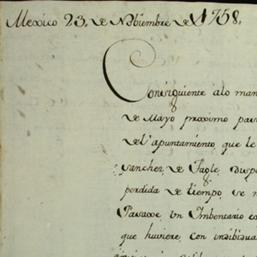 Mexico 23, de Nobiembre de 1758,
Consiguiente alo man
de Mayo proximo pas
del apuntamiento, que le
Sanchez de Tagle, disp
perdida de tiempo, se
Pasaxe un Imbentario
que huviere, con indibidua